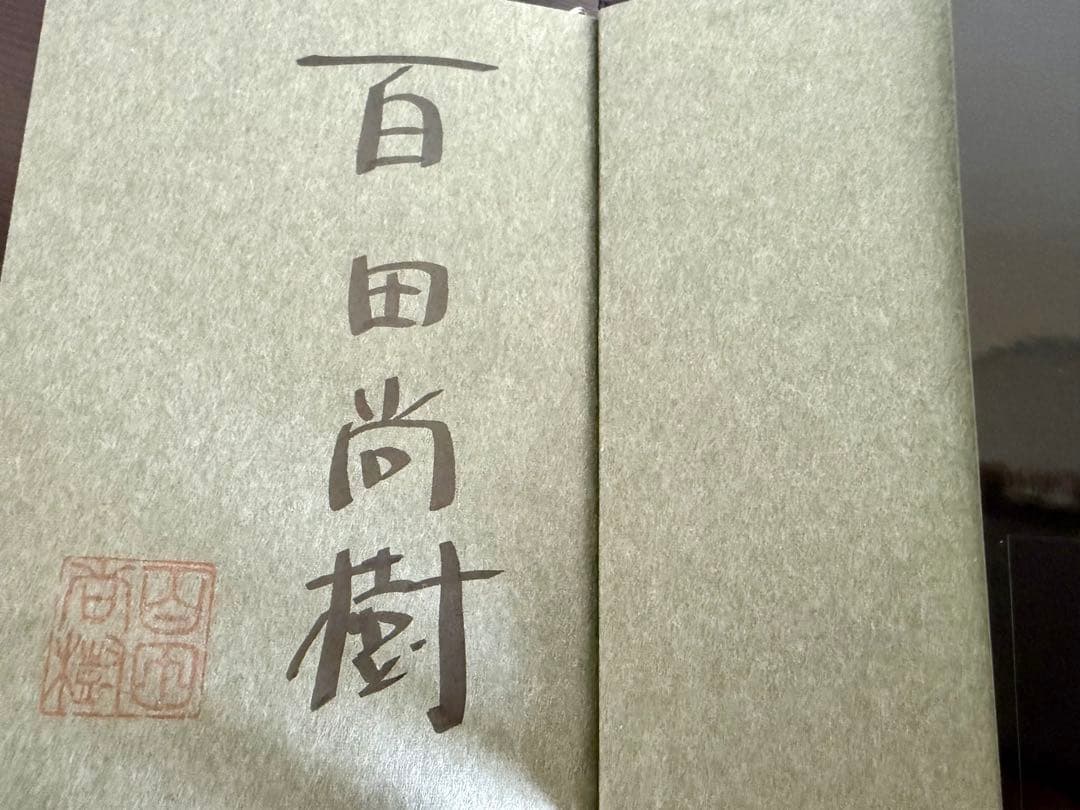 百田尚樹
百田
尚樹